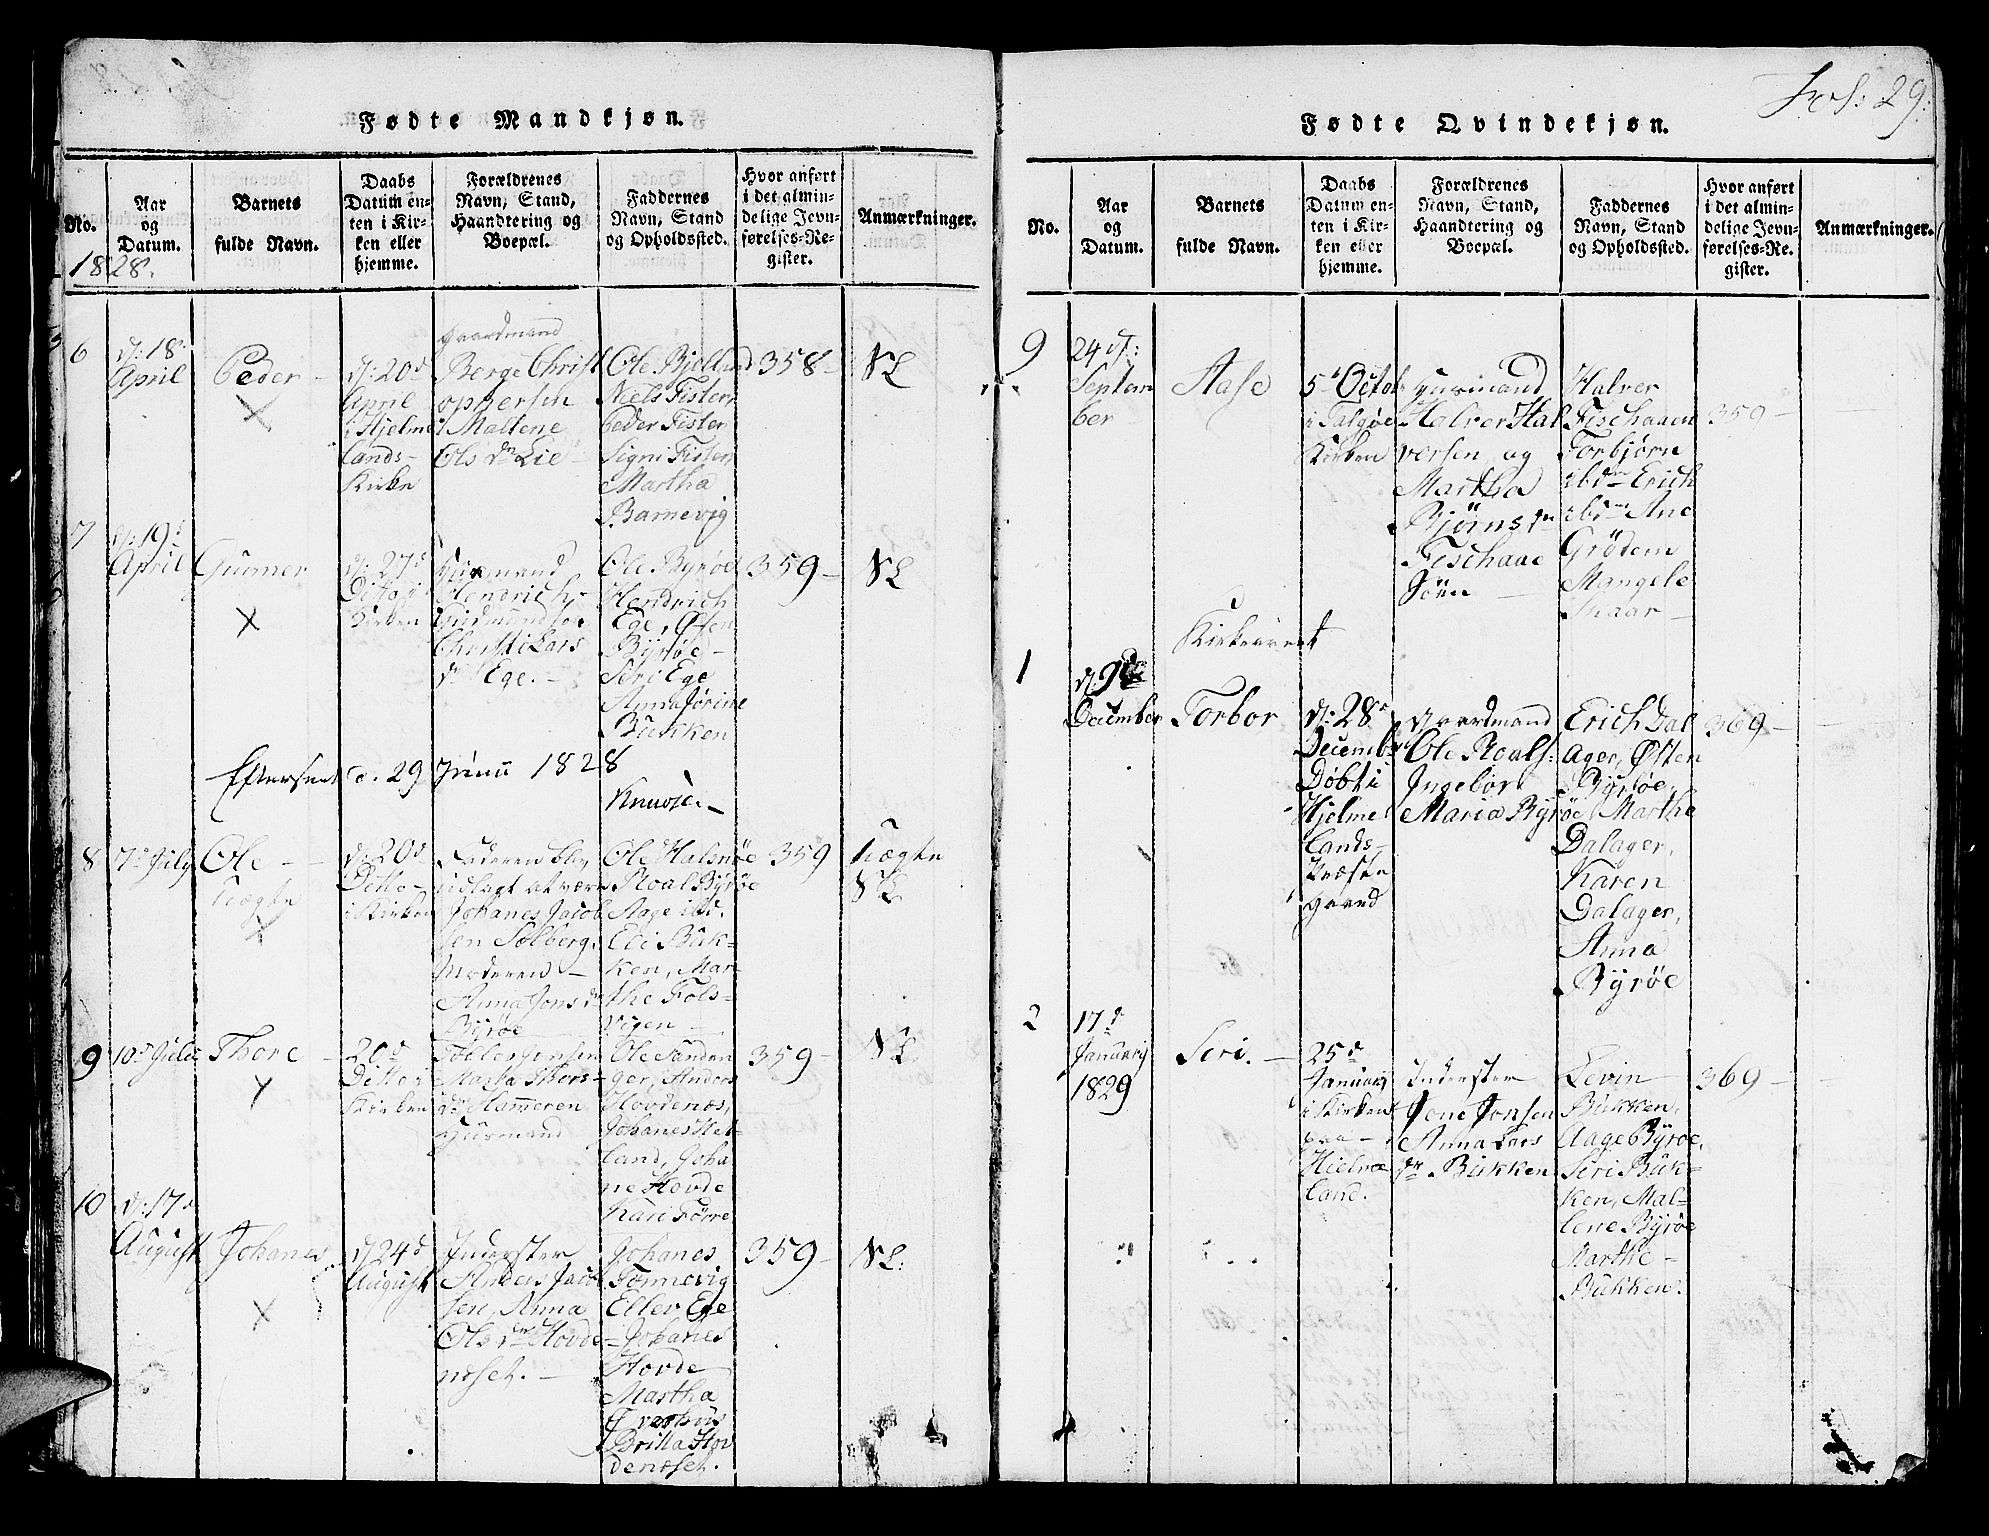 Fødte Mandkjøn.
No.
Aar
og
Datum.
Barnets
fulde Navn.
Daabs
Datum en-
ten i Kir-
ken eller
hjemme.
Forældrenes
Navn, Stand,
Haandtering og
Boepæl.
Faddernes
Navn, Stand
og Opholdssted.
Hvor anført
i det almin-
delige Jevn-
førelses-Re-
gister.
Anmærkninger.
1828.
6
d: 18
April
Peder
d: 20d
April
i Hjelme
lands-
Kirke
Gaardmand
Berge Christ
ophersen
Malene
Ols dr Lie
Ole Bjelland
Niels Fister
Peder Fister
Signi Fister
Martha
Barnevig
358-
7
d: 19d
April
Gunner
d: 27d
Ditto i
Kirken
Huusmand
Hendrich
Gudmundsen
Christi Lars
dr Ege.-
Ole Byrøe
Hendrich
Ege, Østen
Byrøe-
Seri Ege
Anna Jørine
Bukken
359-
Efterseet d. 29 Junii 1828
8
7d July
Ole -
Uægte
d: 20d
Ditto-
i Kirken
Faderen blev
udlagt at være
Johanes Jacob
sen Solberg.
Moderen-
Anna Jons dr
Byrøe
Ole Halsnøe
Roal Byrøe
Aage ibd.
Eli Buk-
ken, Mar-
the Fols-
vigen-
359
Uægte
9
10d July
Thore -
20d
Ditto i
Kirken
Martha Thors-
dr Hammeren
Huusmand
Ole Sanden
ger, Anders
Hovdenæs,
Johanes Hel-
land, Joha
ne Hovde
Kari Førre
359-
10
d: 17d
August
Johanes
d 24d
August
Inderster
Anders Jacob
sen, Anna
Ols dr Hovde-
næset.-
Johanes
Tømmevig
Ellev Ege
Johanes
Hovde
Martha
Britta Hov
denæset.
359-
Fol: 29.
Fødte Qvindekjøn.
No.
Aar
og
Datum.
Barnets
fulde Navn.
Daabs
Datum en-
ten i Kir-
ken eller
hjemme.
Forældrenes
Navn, Stand,
Haandtering og
Boepæl.
Faddernes
Navn, Stand
og Opholdssted.
Hvor anført
i det almin-
delige Jevn-
førelses-Re-
gister.
Anmærkninger.
9
24 d:
Septem
ber
Aase
5d Octob
i Talgøe
Kirken
Huusmand
Halver Hal
versen og
Martha
Bjørns dr
Fischaae
Halver
Fischaaen
Torbjørn
ibdm Erich
ibdm Ane
Grødem
Mangele
359-
1
d: 9de
December
Torbor
d: 28d
Decembr
Døbt i
Hjelme
lands-
Præste
gaard
Gaardmand
Ole Roals:
Ingebor
Maria Byrøe
Erich Dal
ager, Østen
Byrøe,
Marthe
Dalager,
Karen
Dalager,
Anna
Byrøe
369-
2
17d
January
1829
Seri. -
25d
January
i Kirken
paa-
Hjelme
land.
Inderster
Jone Jonsen
Anna Lars
dr Bukken
Levin
Bukken,
Aage Byrøe,
Seri Buk-
ken, Mal-
lene Byrøe
Marthe-
Bukken.
369-